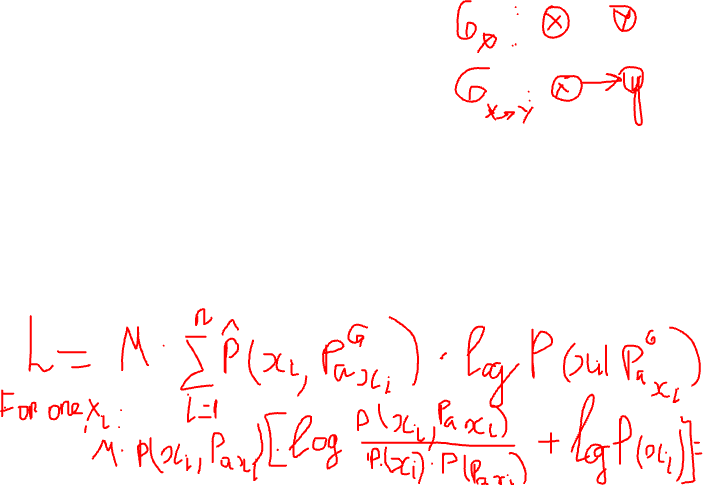 G_∅ : X Y
G_{X→Y} : X → Y
L = M · ∑_{i=1}^{n} P̂(x_i, Pa_{x_i}^G) · log P(x_i | Pa_{x_i}^G)
For one X_i :
M · P(x_i, Pa_{x_i}) [· log \frac{P(x_i, Pa_{x_i})}{P(x_i) · P(Pa_{x_i})} + log P(x_i)] =